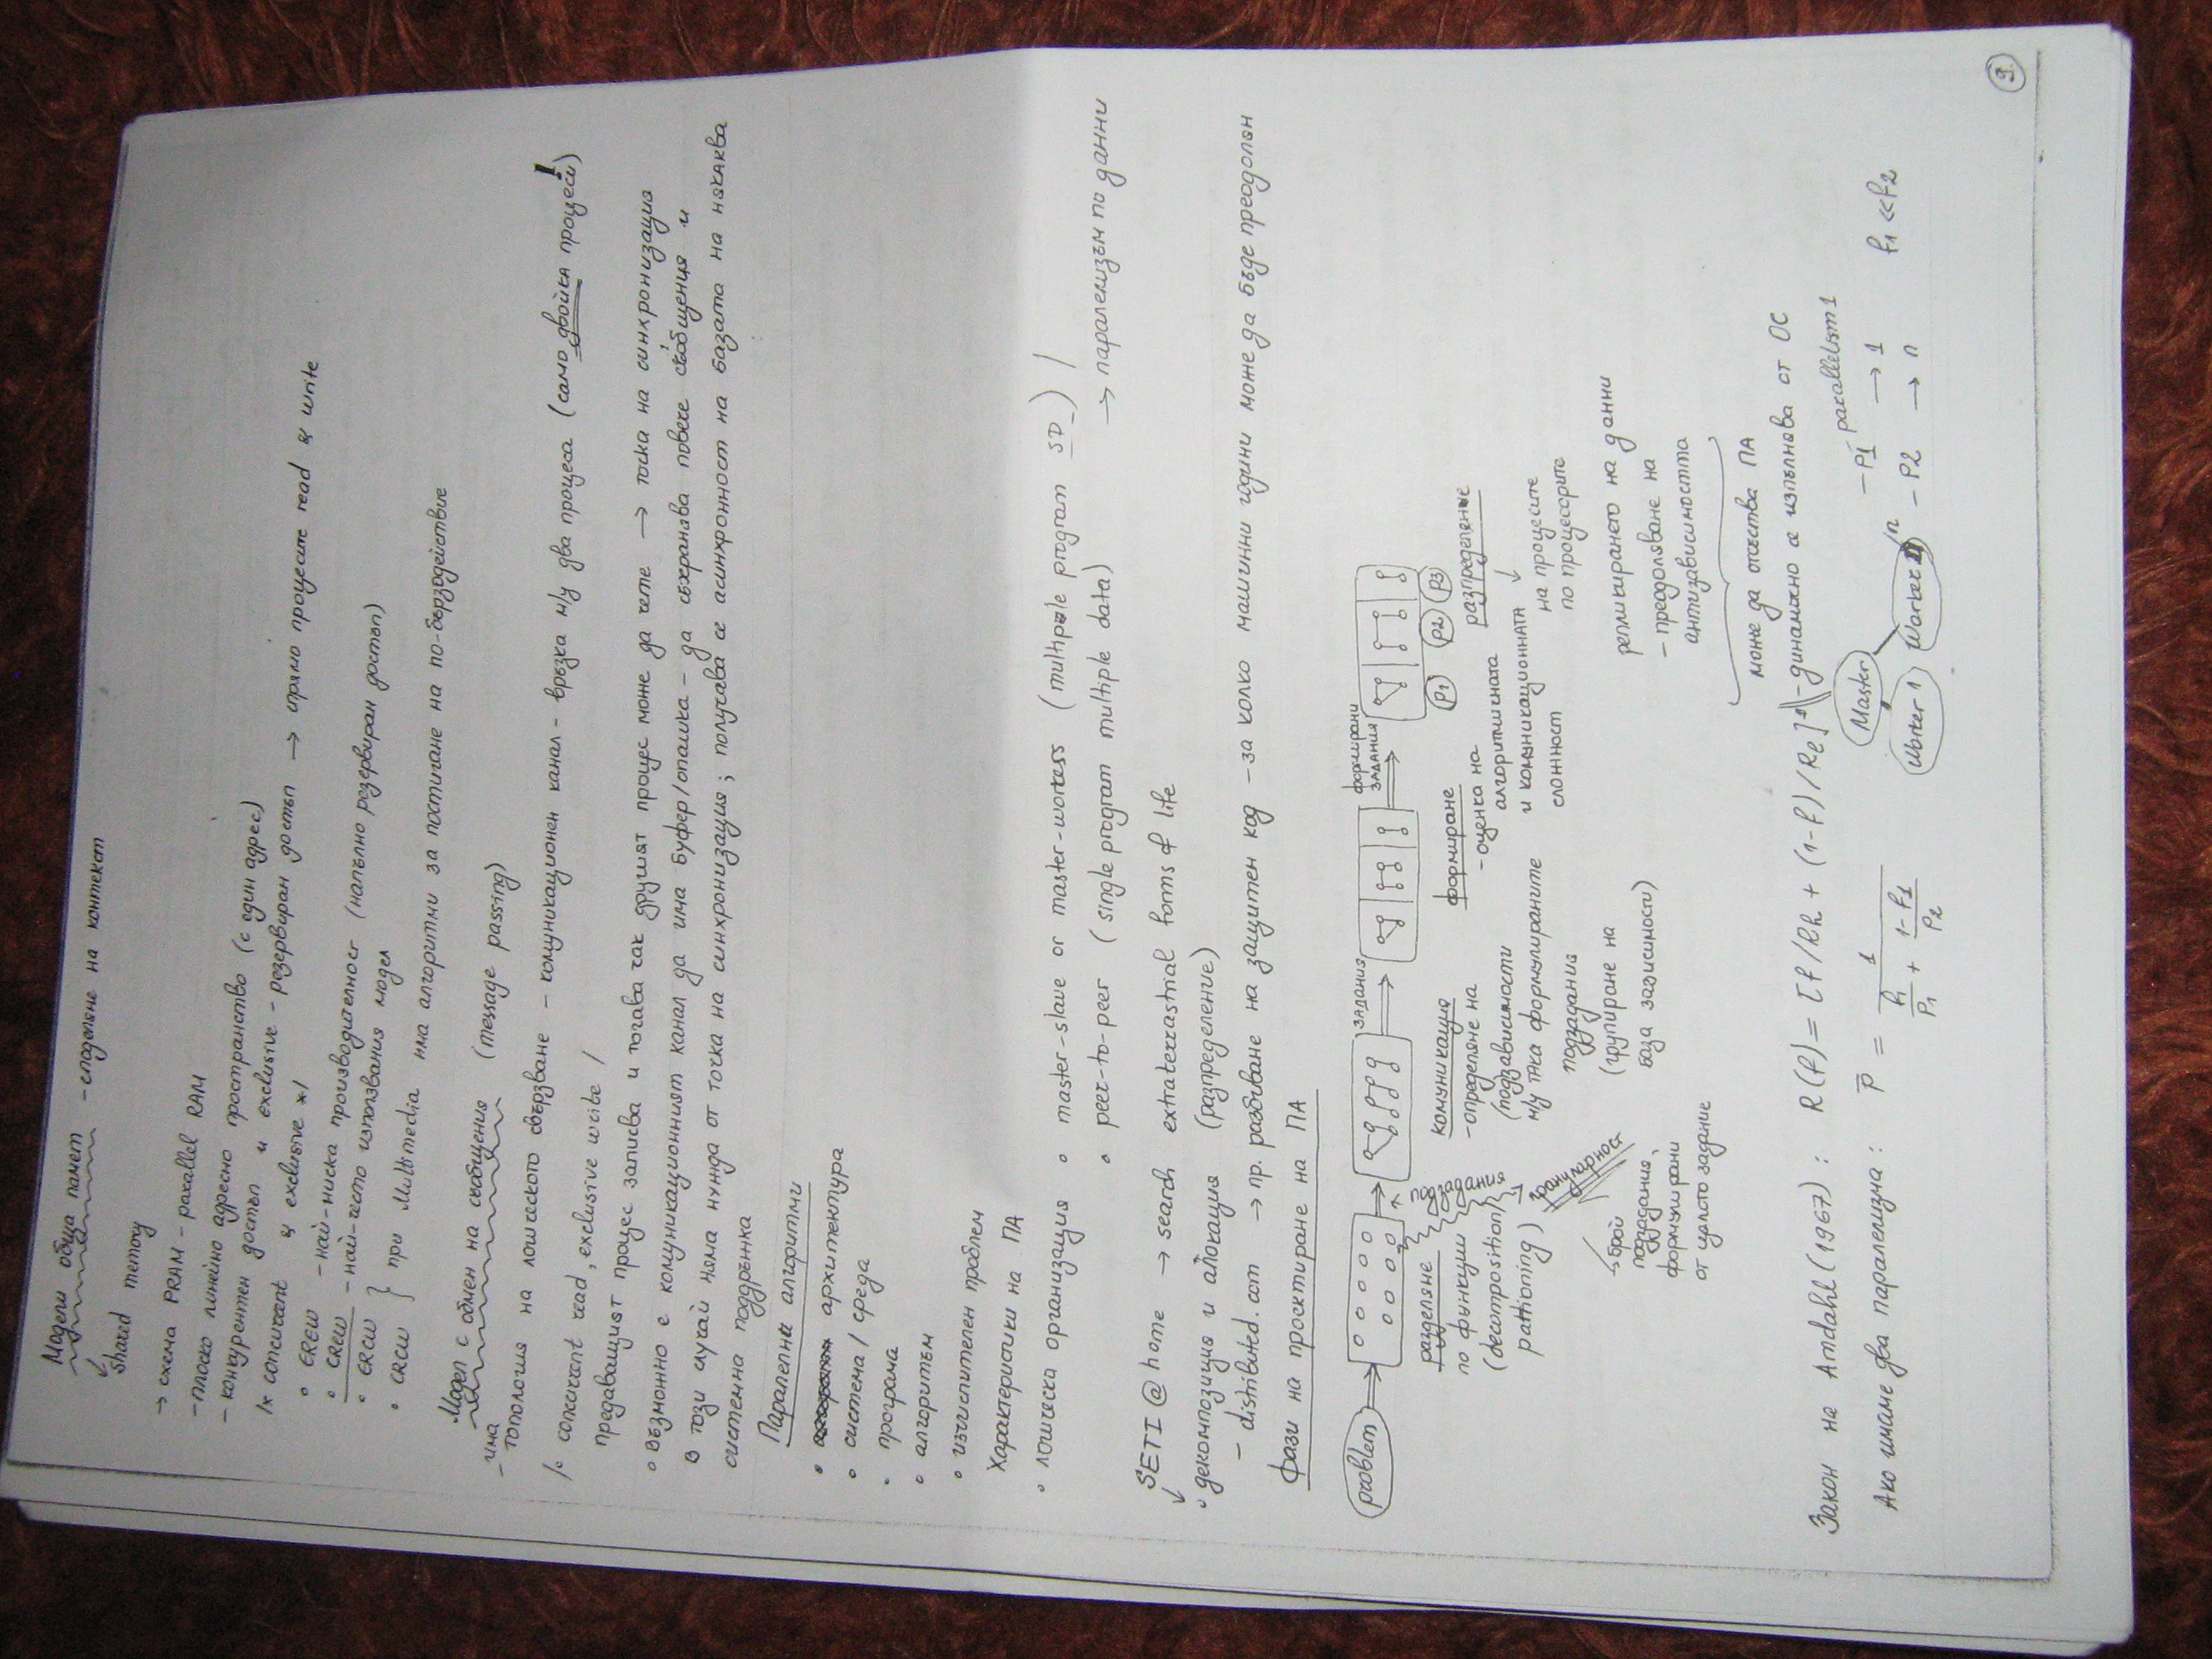 Модели обща памет - споделяне на контекст
↓
shared memory
→ схема PRAM - parallel RAM
- плоско линейно адресно пространство (с един адрес)
- конкурентен достъп и exclusive - резервиран достъп → пряко процесите read & write
/* concurrent & exclusive */
• EREW - най-ниска производителност (напълно резервиран достъп)
• CREW - най-често използвания модел
• ERCW
• CRCW } при Multimedia има алгоритми за постигане на по-бързодействие
Модел с обмен на съобщения (message passing)
- има
топология на логическото свързване - комуникационен канал - връзка м/у два процеса (само двойка процеси) !
/• concurrent read, exclusive write /
предаващият процес записва и тогава чак другият процес може да чете → точка на синхронизация
• възможно е комуникационният канал да има буфер/опашка - да съхранява повече съобщения и
в този случай няма нужда от точка на синхронизация; получава се асинхронност на базата на някаква
системна поддръжка
Паралелни алгоритми
• архитектура
• система / среда
• програма
• алгоритъм
• изчислителен проблем
Характеристики на ПА
• логическа организация • master-slave or master-workers (multiple program SD) /
• peer-to-peer (single program multiple data) → паралелизъм по данни
SETI @ home → search extraterrastrial forms of life
↓
• декомпозиция и алокация (разпределение)
- distributed.com → пр. разбиване на защитен код - за колко машинни години може да бъде преодолян
Фази на проектиране на ПА
problem
задания
формирани
задания
P1 P2 P3
разделяне
по функции
(decomposition/
pattioning)
→ брой
подзадания,
формулирани
от цялото задание
комуникация
- определяне на
(подзависимости
м/у тяка формулираните
подзадания
(групиране на
база зависимости)
формиране
- оценка на
алгоритмичната
и комуникационната
сложност
разпределение
↓
на процесите
по процесорите
репликирането на данни
- преодоляване на
антизависимостта
може да отсъства ПА
- динамично се изпълнява от ОС
Закон на Amdahl (1967) : R(f) = [f/Rh + (1-f)/Re]⁻¹
Master
Worker 1 Worker n
- P1 parallelism 1
→ 1
- P2 → n
f1 << f2
Ако имаме два паралелизма : P = 1 / (f1/P1 + (1-f1)/P2)
9.